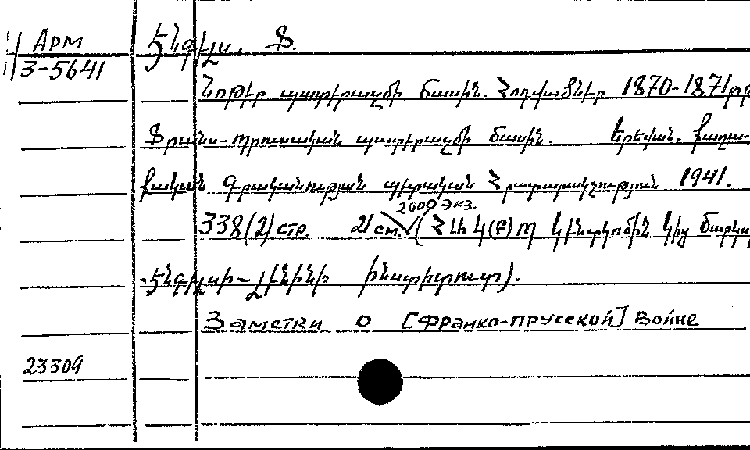 Арм
3-5641
Էնգելս. Ֆ.
Նոթեր պատերազմի մասին. Հոդվածներ 1870-1871 թթ
Ֆրանս-պրուսական պատերազմի մասին. Երեվան. քաղա-
քական գրականության պետական Հրատարակչություն 1941.
2000 экз.
338(2) стр. 21 см. (ՀԱԿ(բ)Կ կենտկոմին կից Մարքս
-Էնգելսի-Լենինի ինստիտուտ).
Заметки о [франко-прусской] войне
23309